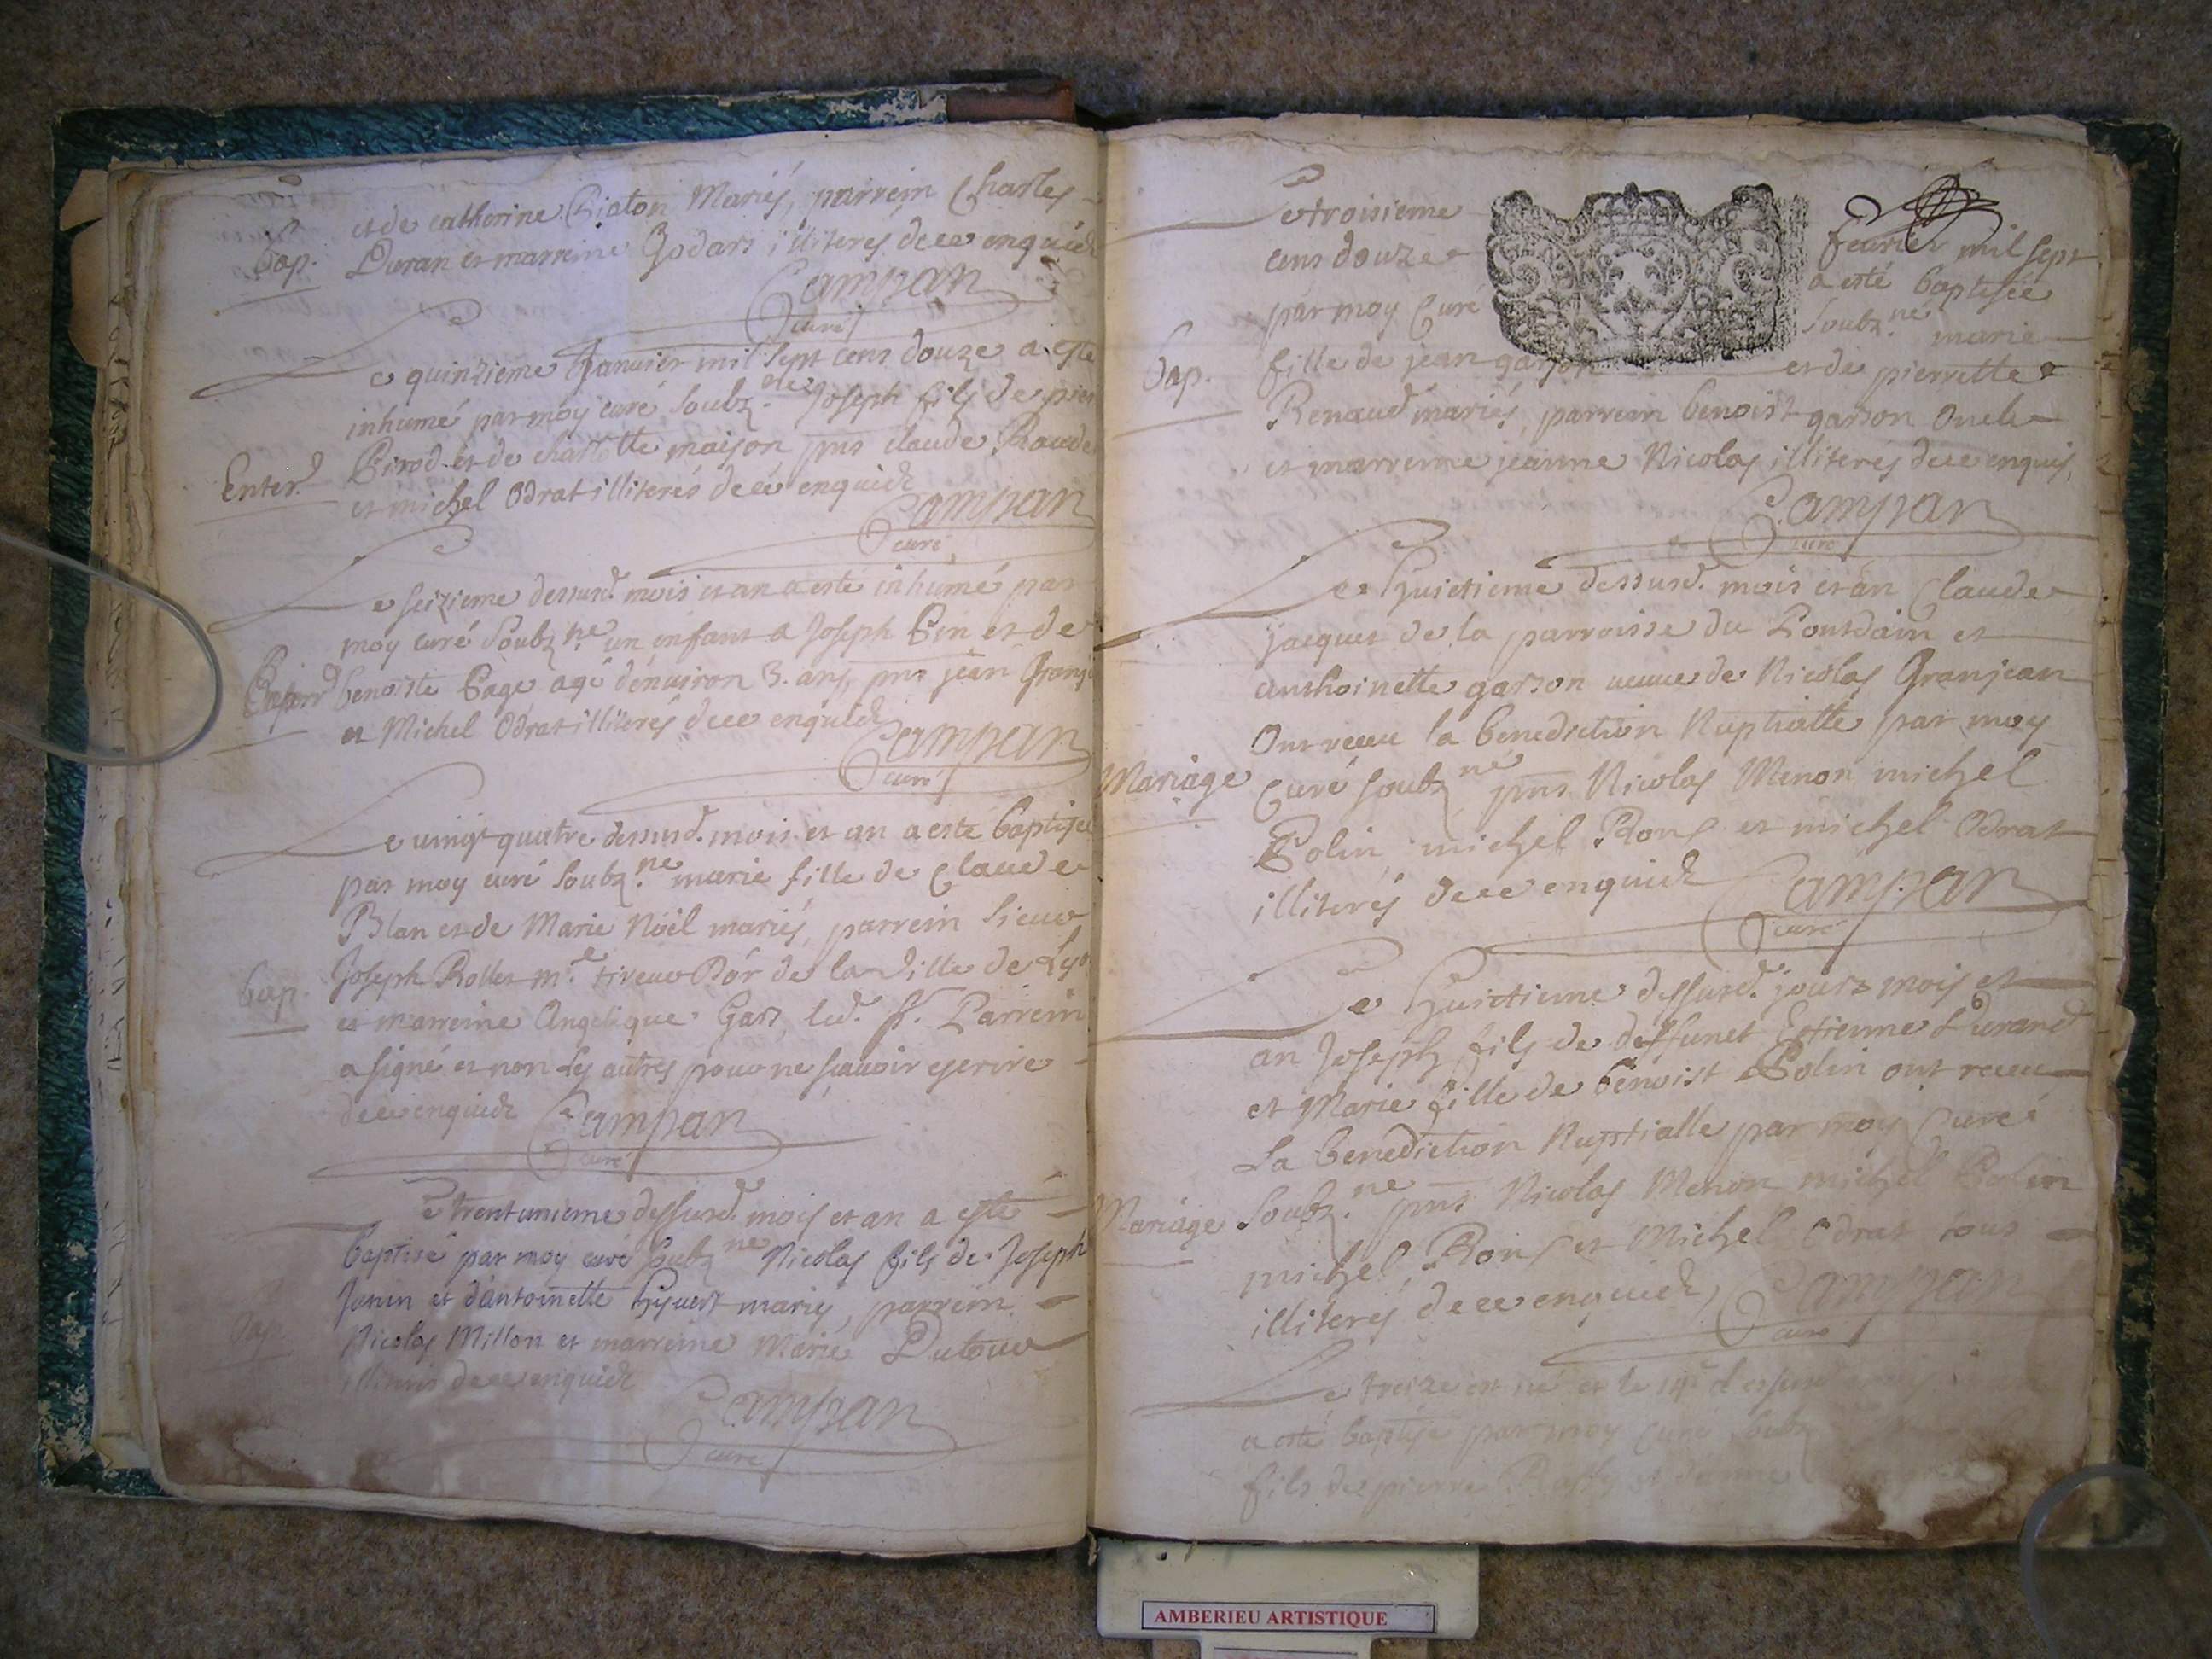 et de catherine Riaton Mariés, parrein Charles
Bap.
Duran et marreine Godars illiterés de ce enquis
Campan
curé
Le quinzieme Janvier mil sept cens douze a esté
inhumé par moy curé soubz.né Joseph fils de pier
Pirod et de charlotte maison pns claude Raude
Enterr.
et michel Odrat illiterés de ce enquidz
Campan
curé
Le seizieme dessusd. mois et an a esté inhumé par
moy curé Soubz.né un enfant a Joseph Bin et de
Enterr
benoiste Page agé d'enuiron 3. ans, pns jean Granj
et Michel Odrat illiterés de ce enquidz
Campan
curé
Le uingt quatre dessusd. mois et an a esté baptisée
par moy curé soubz.né marie fille de Claude
Blan et de Marie Noël mariés, parrein Sieur
Joseph Rolles m.e tireur Dór de la Ville de Lyo
Bap.
et marreine Angelique Gars, led. Sr. Parrein
a signé et non Les autres pour ne sçauoir escrire
de ce enquidz Campan
curé
Le trentunieme dessusd. mois et an a esté
baptisé par moy curé soubz né Nicolas fils de Joseph
Janin et d'antoinette mariés, parrein
Bap.
Nicolas Millon et marreine Marie Dutour
illiterés de ce enquidz
Campan
curé
Le troisieme feurier mil sept
cens douze a esté baptisée
par moy Curé soubz.né marie
Bap.
fille de jean garson et de pierrette
Renaud mariés, parrein benoist garson Oncle
et marreine jeanne Nicolas illiterés de ce enquis,
Campan
curé
Le Huictieme dessusd. mois et an Claude
jacquet de la parroisse du Pontdain et
anthoinette garson ueuue de Nicolas Granjean
Ont receu la benediction Nuptialle par moy
Mariage
Curé soubz né pns Nicolas Menon michel
Polin, michel Rons et michel Odrat
illiterés de ce enquidz Campan
curé
Le Huictieme dessusd. jours mois et
an Joseph fils de deffunct Estienne Durand
et Marie fille de benoist Polin ont receu
La benediction Nuptialle par moy Curé
Mariage
Soubz.né pns Nicolas Menon michel Polin
michel Rons et Michel Odrat tous
illiterés de ce enquidz, Campan
curé
Le treize est né et le dessusd
a esté baptisé par moy Curé soubz
fils de pierre et d'anne
AMBERIEU ARTISTIQUE